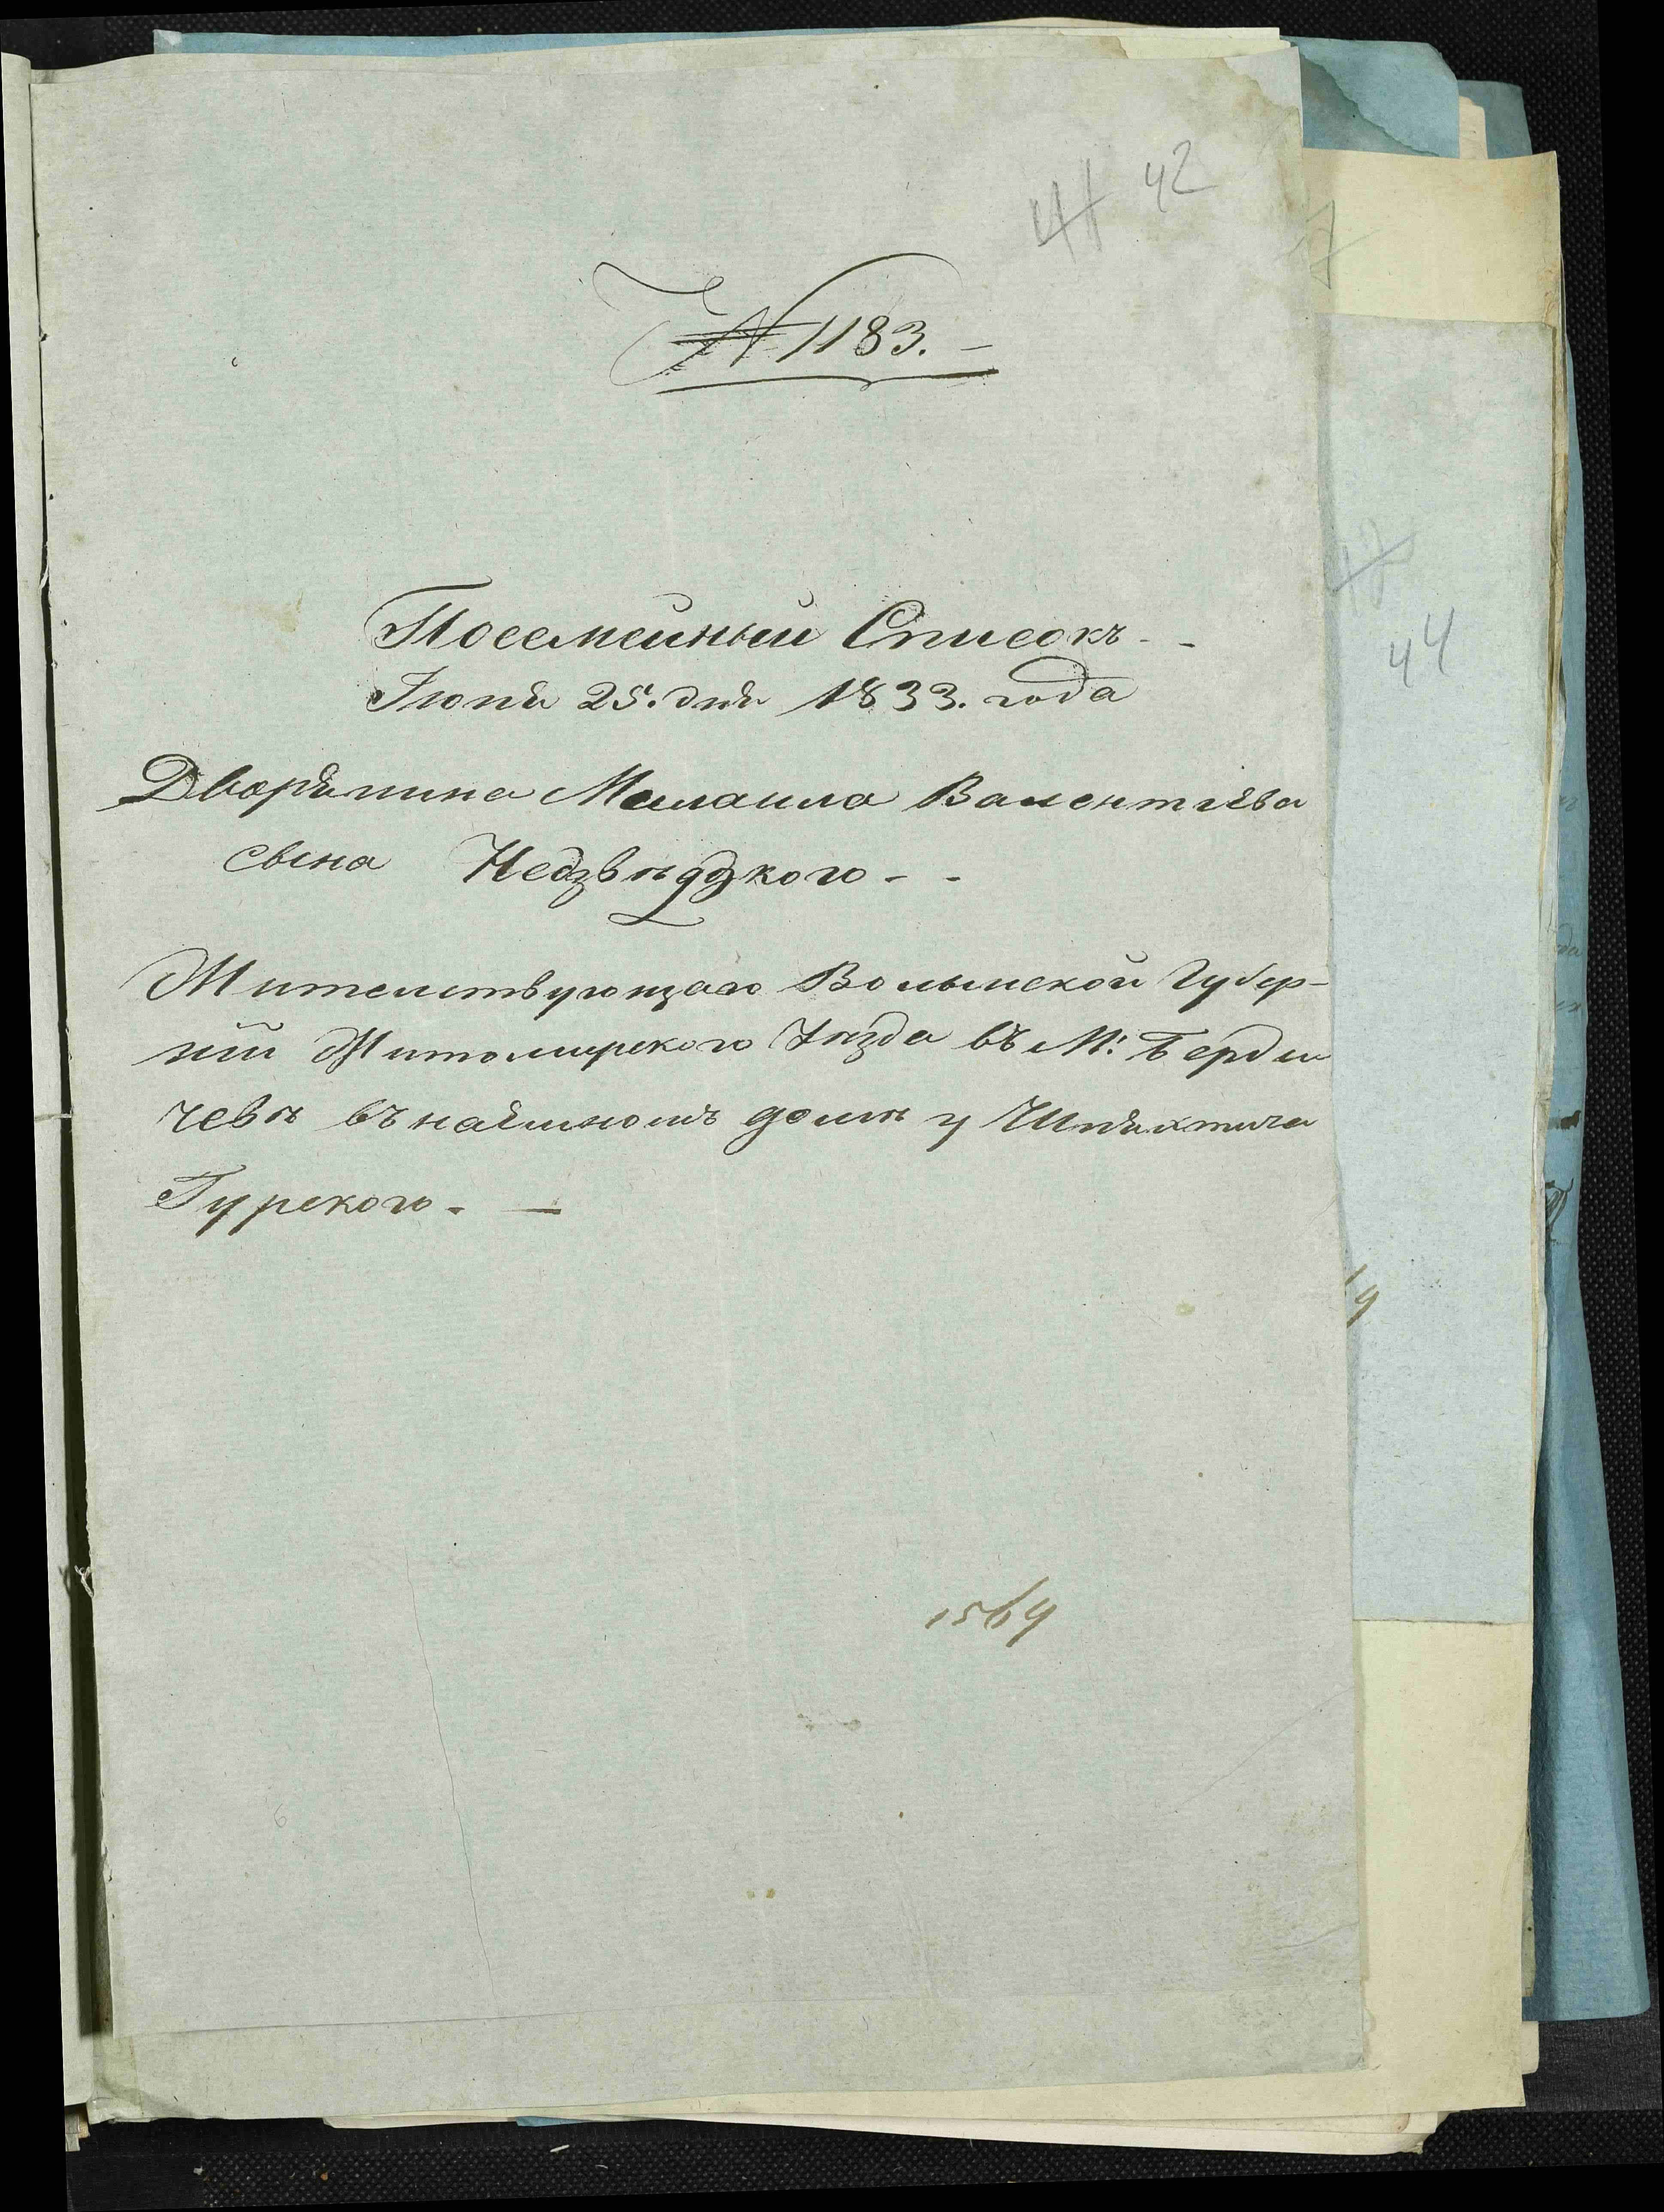 41 42
№ 1183.
Посемейный Списокъ
Іюня 25. дня 1833. года
Дворянина Михаила Валентіева
сына Недзвѣдзкого
Жителствующаго Волынской Губер-
ніи Житомирского Уѣзда въ М: Берди
чевѣ въ наемномъ домѣ у Шляхтича
Гурского.
44
1564